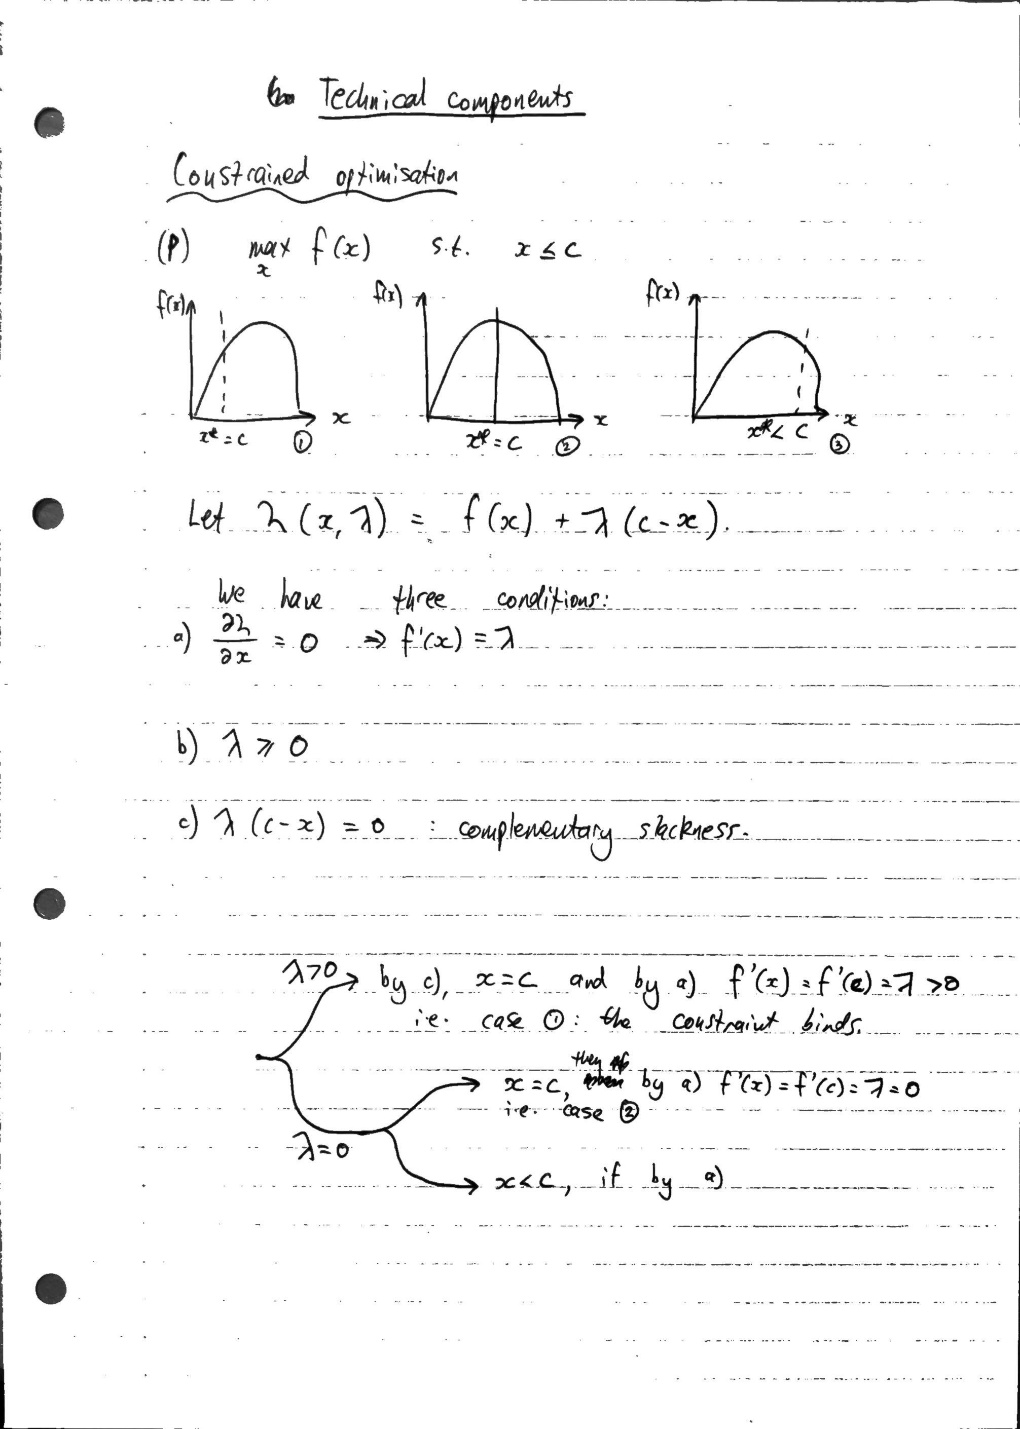 Technical components
Constrained optimisation
(P) max f(x) s.t. x ≤ c
x
f(x) f(x) f(x)
x x x
x* = c ① x* = c ② x* < c ③
Let L(x, λ) = f(x) + λ(c - x).
We have three conditions:
a) ∂L/∂x = 0 ⇒ f'(x) = λ
b) λ ≥ 0
c) λ(c - x) = 0 : complementary slackness.
λ>0 → by c), x = c and by a) f'(x) = f'(c) = λ > 0
i.e. case ①: the constraint binds.
then
x = c, by a) f'(x) = f'(c) = λ = 0
i.e. case ②
λ = 0
x < c, if by a)